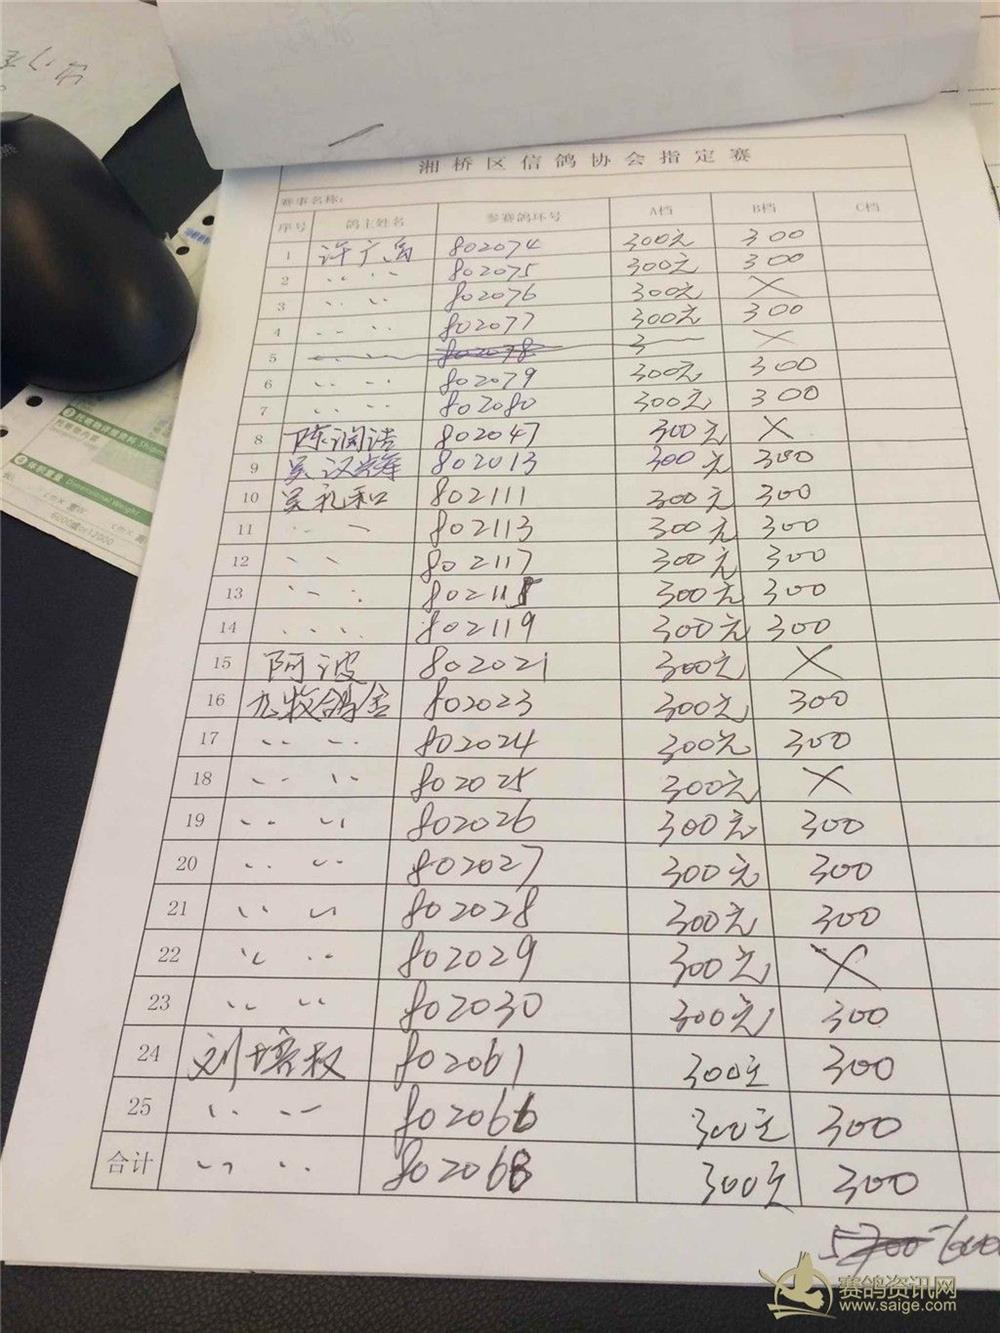 湘桥区信鸽协会指定赛
赛事名称:
序号 鸽主姓名 参赛鸽环号 A档 B档 C档
1 许广岛 802074 300元 300
2 〃 〃 802075 300元 300
3 〃 〃 802076 300元 X
4 〃 〃 802077 300元 300
5 〃 〃 802078 3 X
6 〃 〃 802079 300元 300
7 〃 〃 802080 300元 300
8 陈润浩 802047 300元 X
9 吴汉辉 802013 300元 300
10 吴礼和 802111 300元 300
11 〃 〃 802113 300元 300
12 〃 〃 802117 300元 300
13 〃 〃 802118 300元 300
14 〃 〃 802119 300元 300
15 阿波 802021 300元 X
16 九牧鸽舍 802023 300元 300
17 〃 〃 802024 300元 300
18 〃 〃 802025 300元 X
19 〃 〃 802026 300元 300
20 〃 〃 802027 300元 300
21 〃 〃 802028 300元 300
22 〃 〃 802029 300元 X
23 〃 〃 802030 300元 300
24 刘培权 802061 300元 300
25 〃 〃 802066 300元 300
合计 〃 〃 802068 300元 300
5700
赛鸽资讯网
www.saige.com